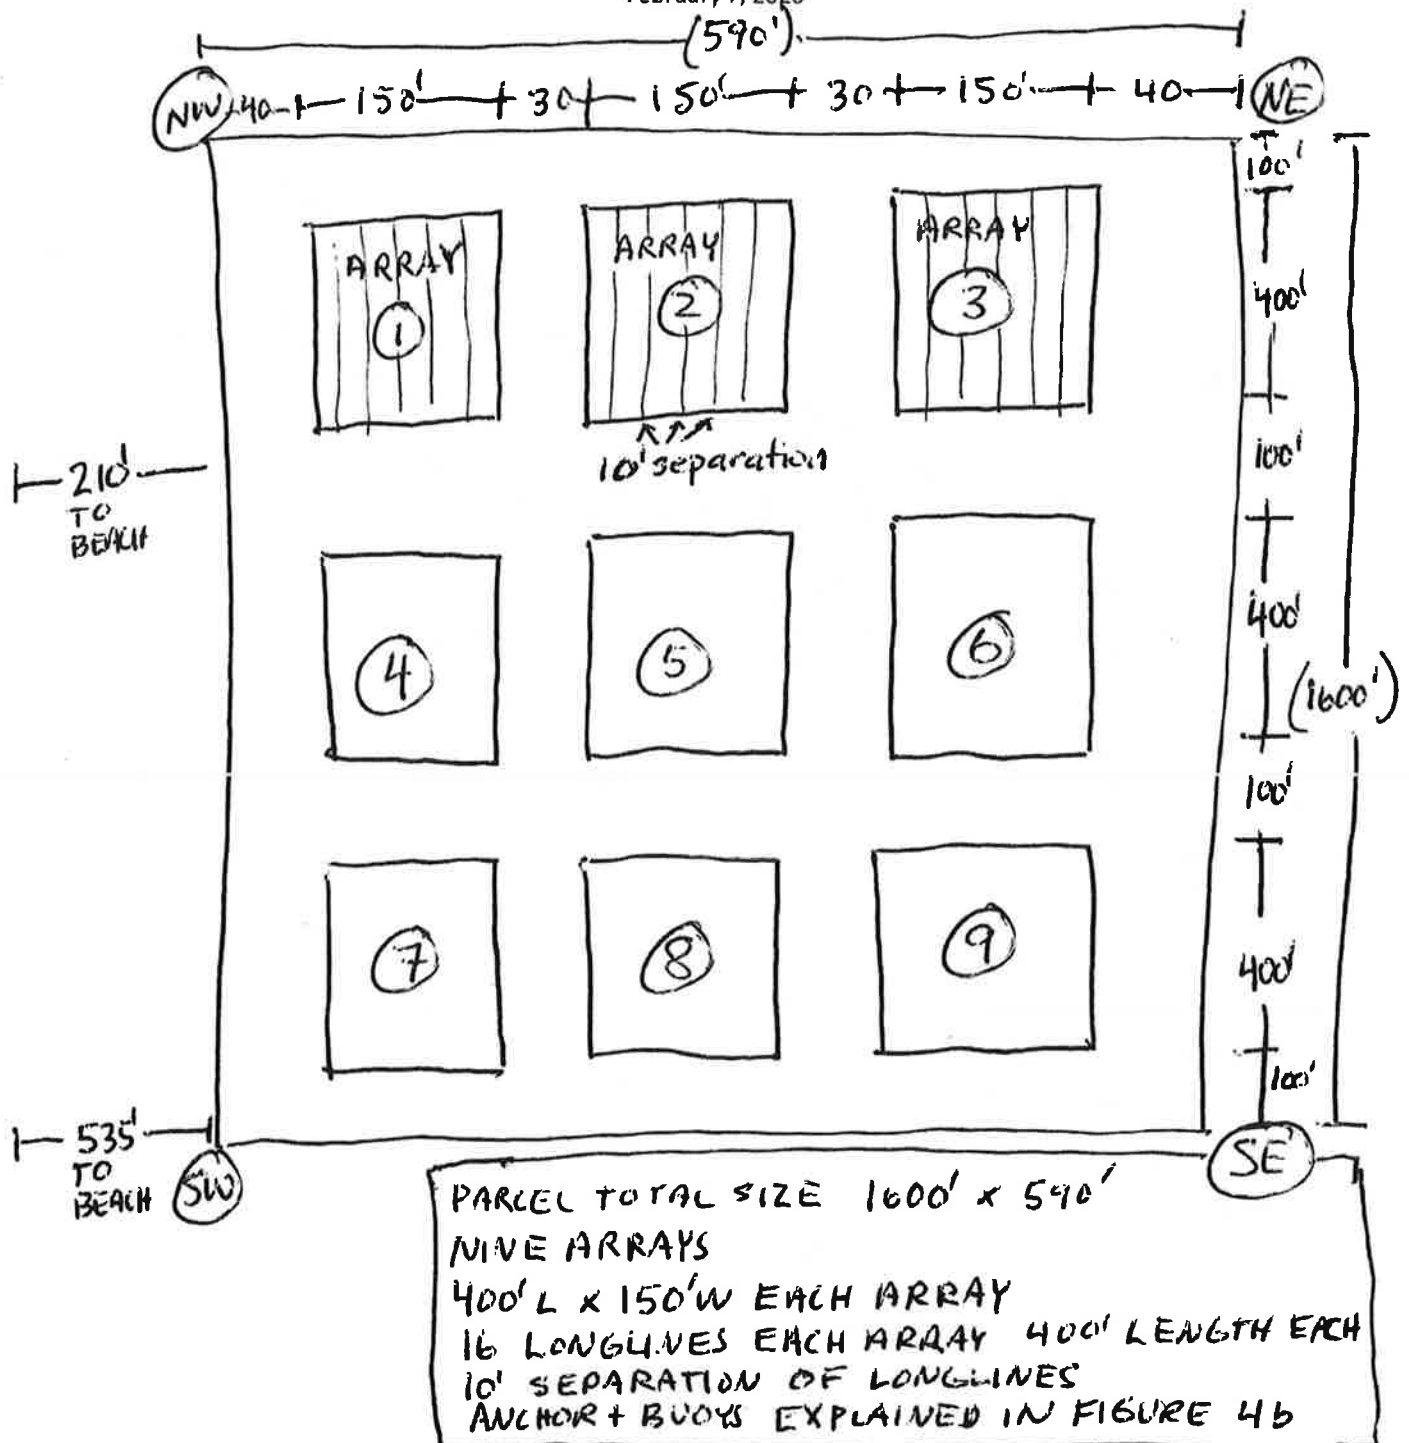 (590')
NW 40 150' 30 150' 30 150' 40 NE
100'
ARRAY ARRAY ARRAY
1 2 3
400'
10' separation
100'
210'
TO
BEACH
4 5 6
400'
(1600')
100'
7 8 9
400'
100'
535'
TO
BEACH
SW
SE
PARCEL TOTAL SIZE 1600' x 590'
NINE ARRAYS
400' L x 150' W EACH ARRAY
16 LONGLINES EACH ARRAY 400' LENGTH EACH
10' SEPARATION OF LONGLINES
ANCHOR + BUOYS EXPLAINED IN FIGURE 4b